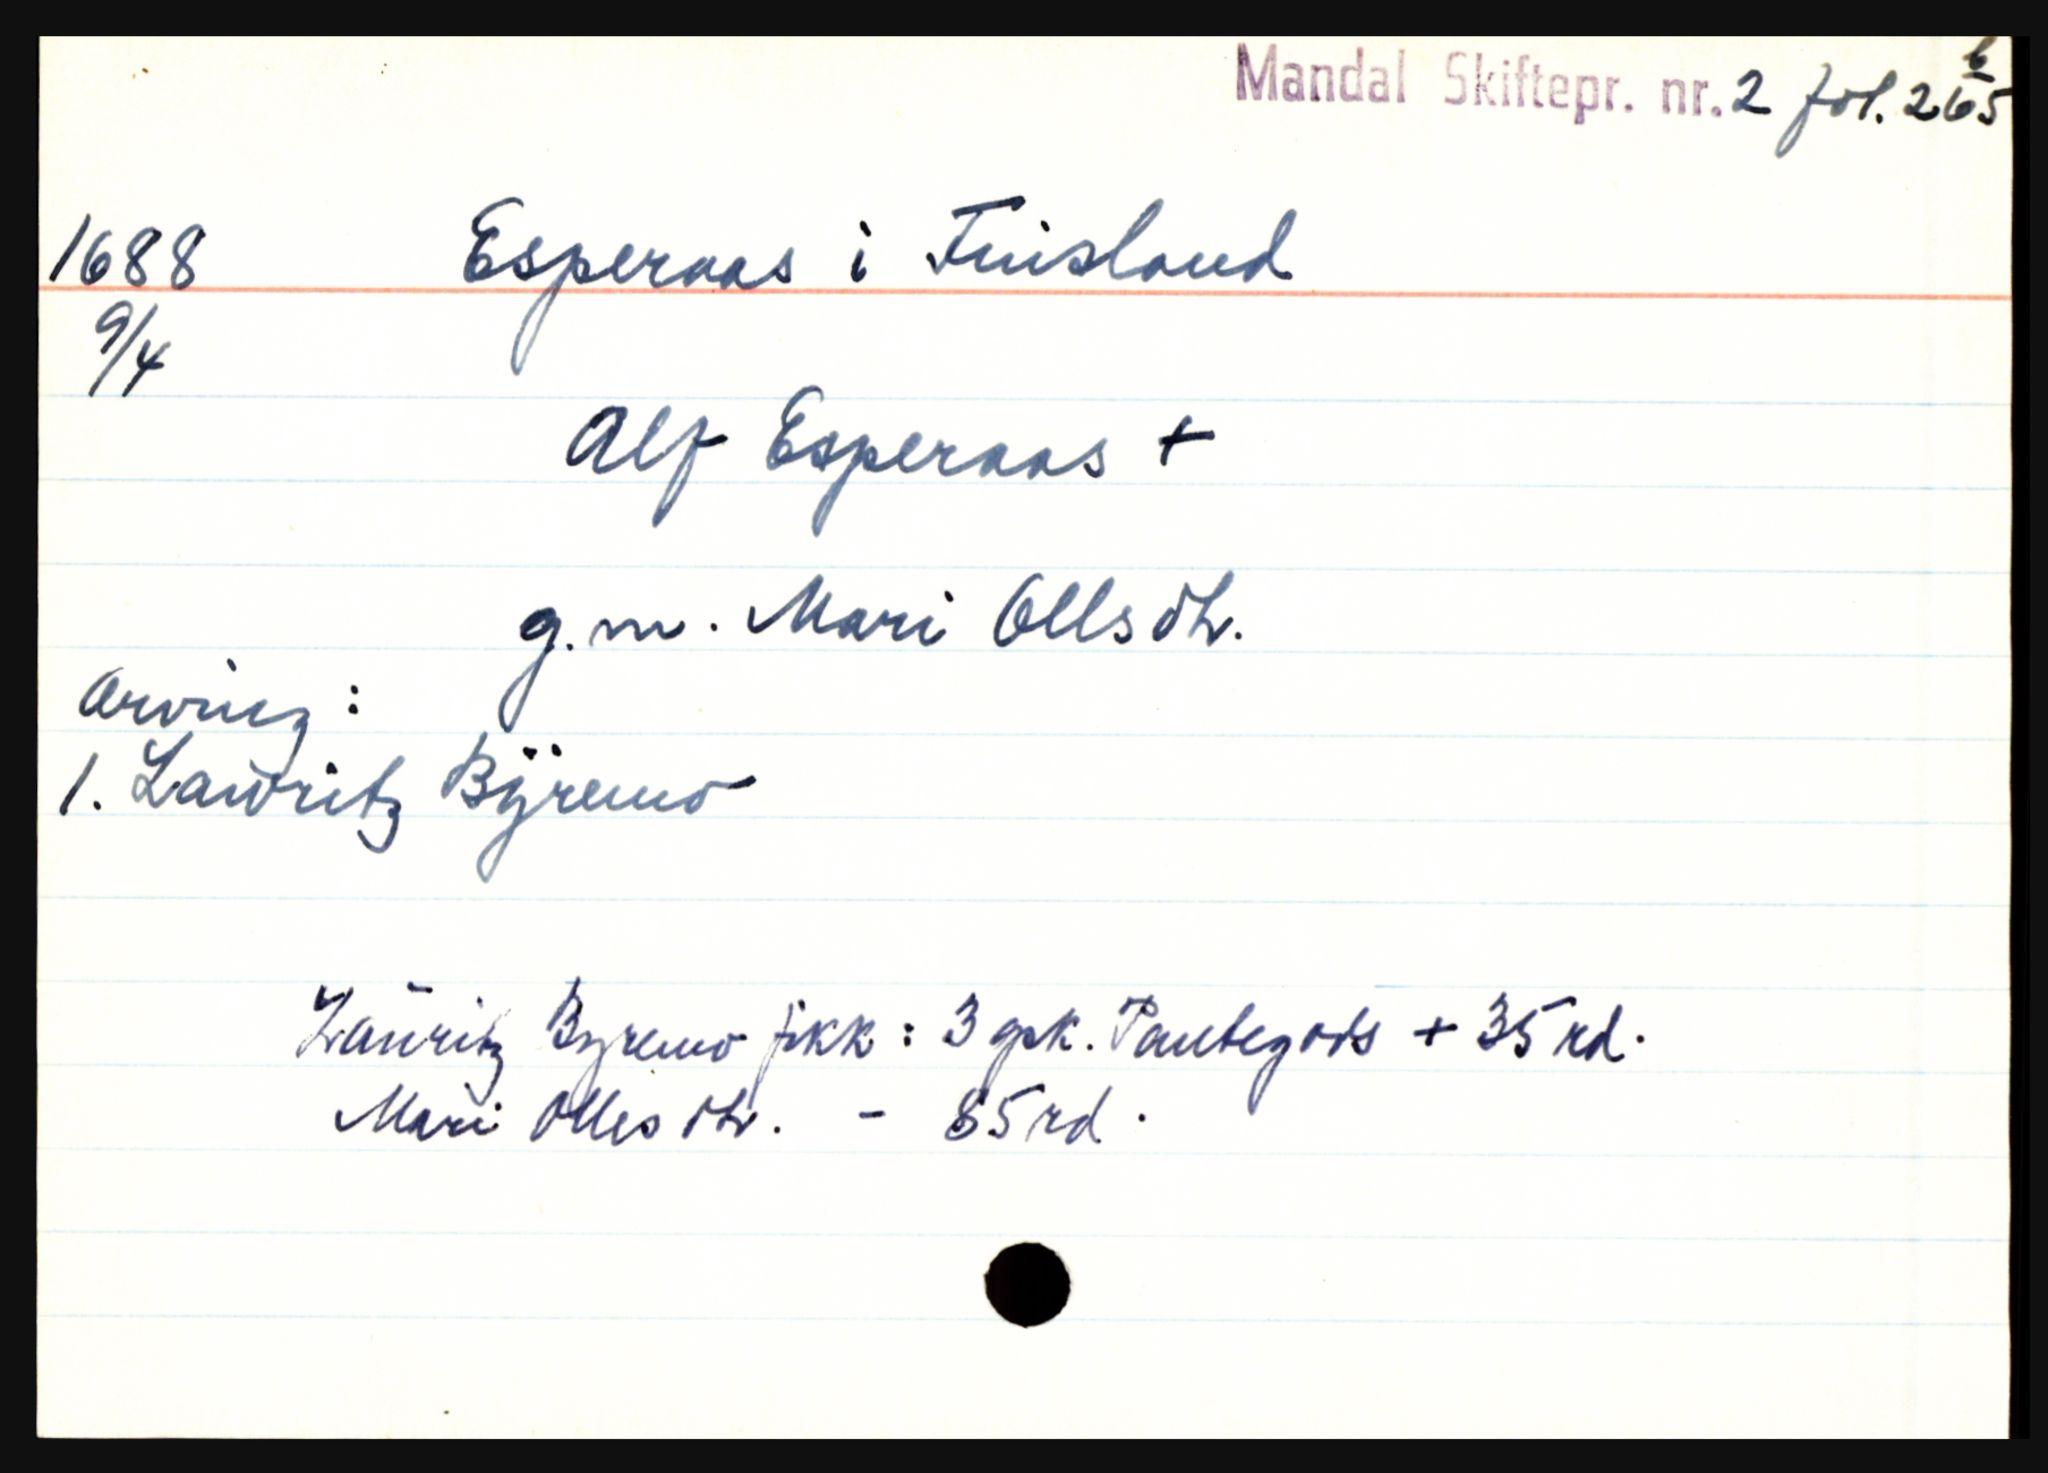 Mandal Skiftepr. nr. 2 fol. 265 b
1688 Esperaas i Finsland
9/4
Alf Esperaas +
g.m. Mari Ollsdtr.
Arving:
1. Laŭritz Bÿremo
Laŭritz Byremo fikk: 3 gsk. Pantegods + 35 rd.
Mari Ollesdtr. - 85 rd.